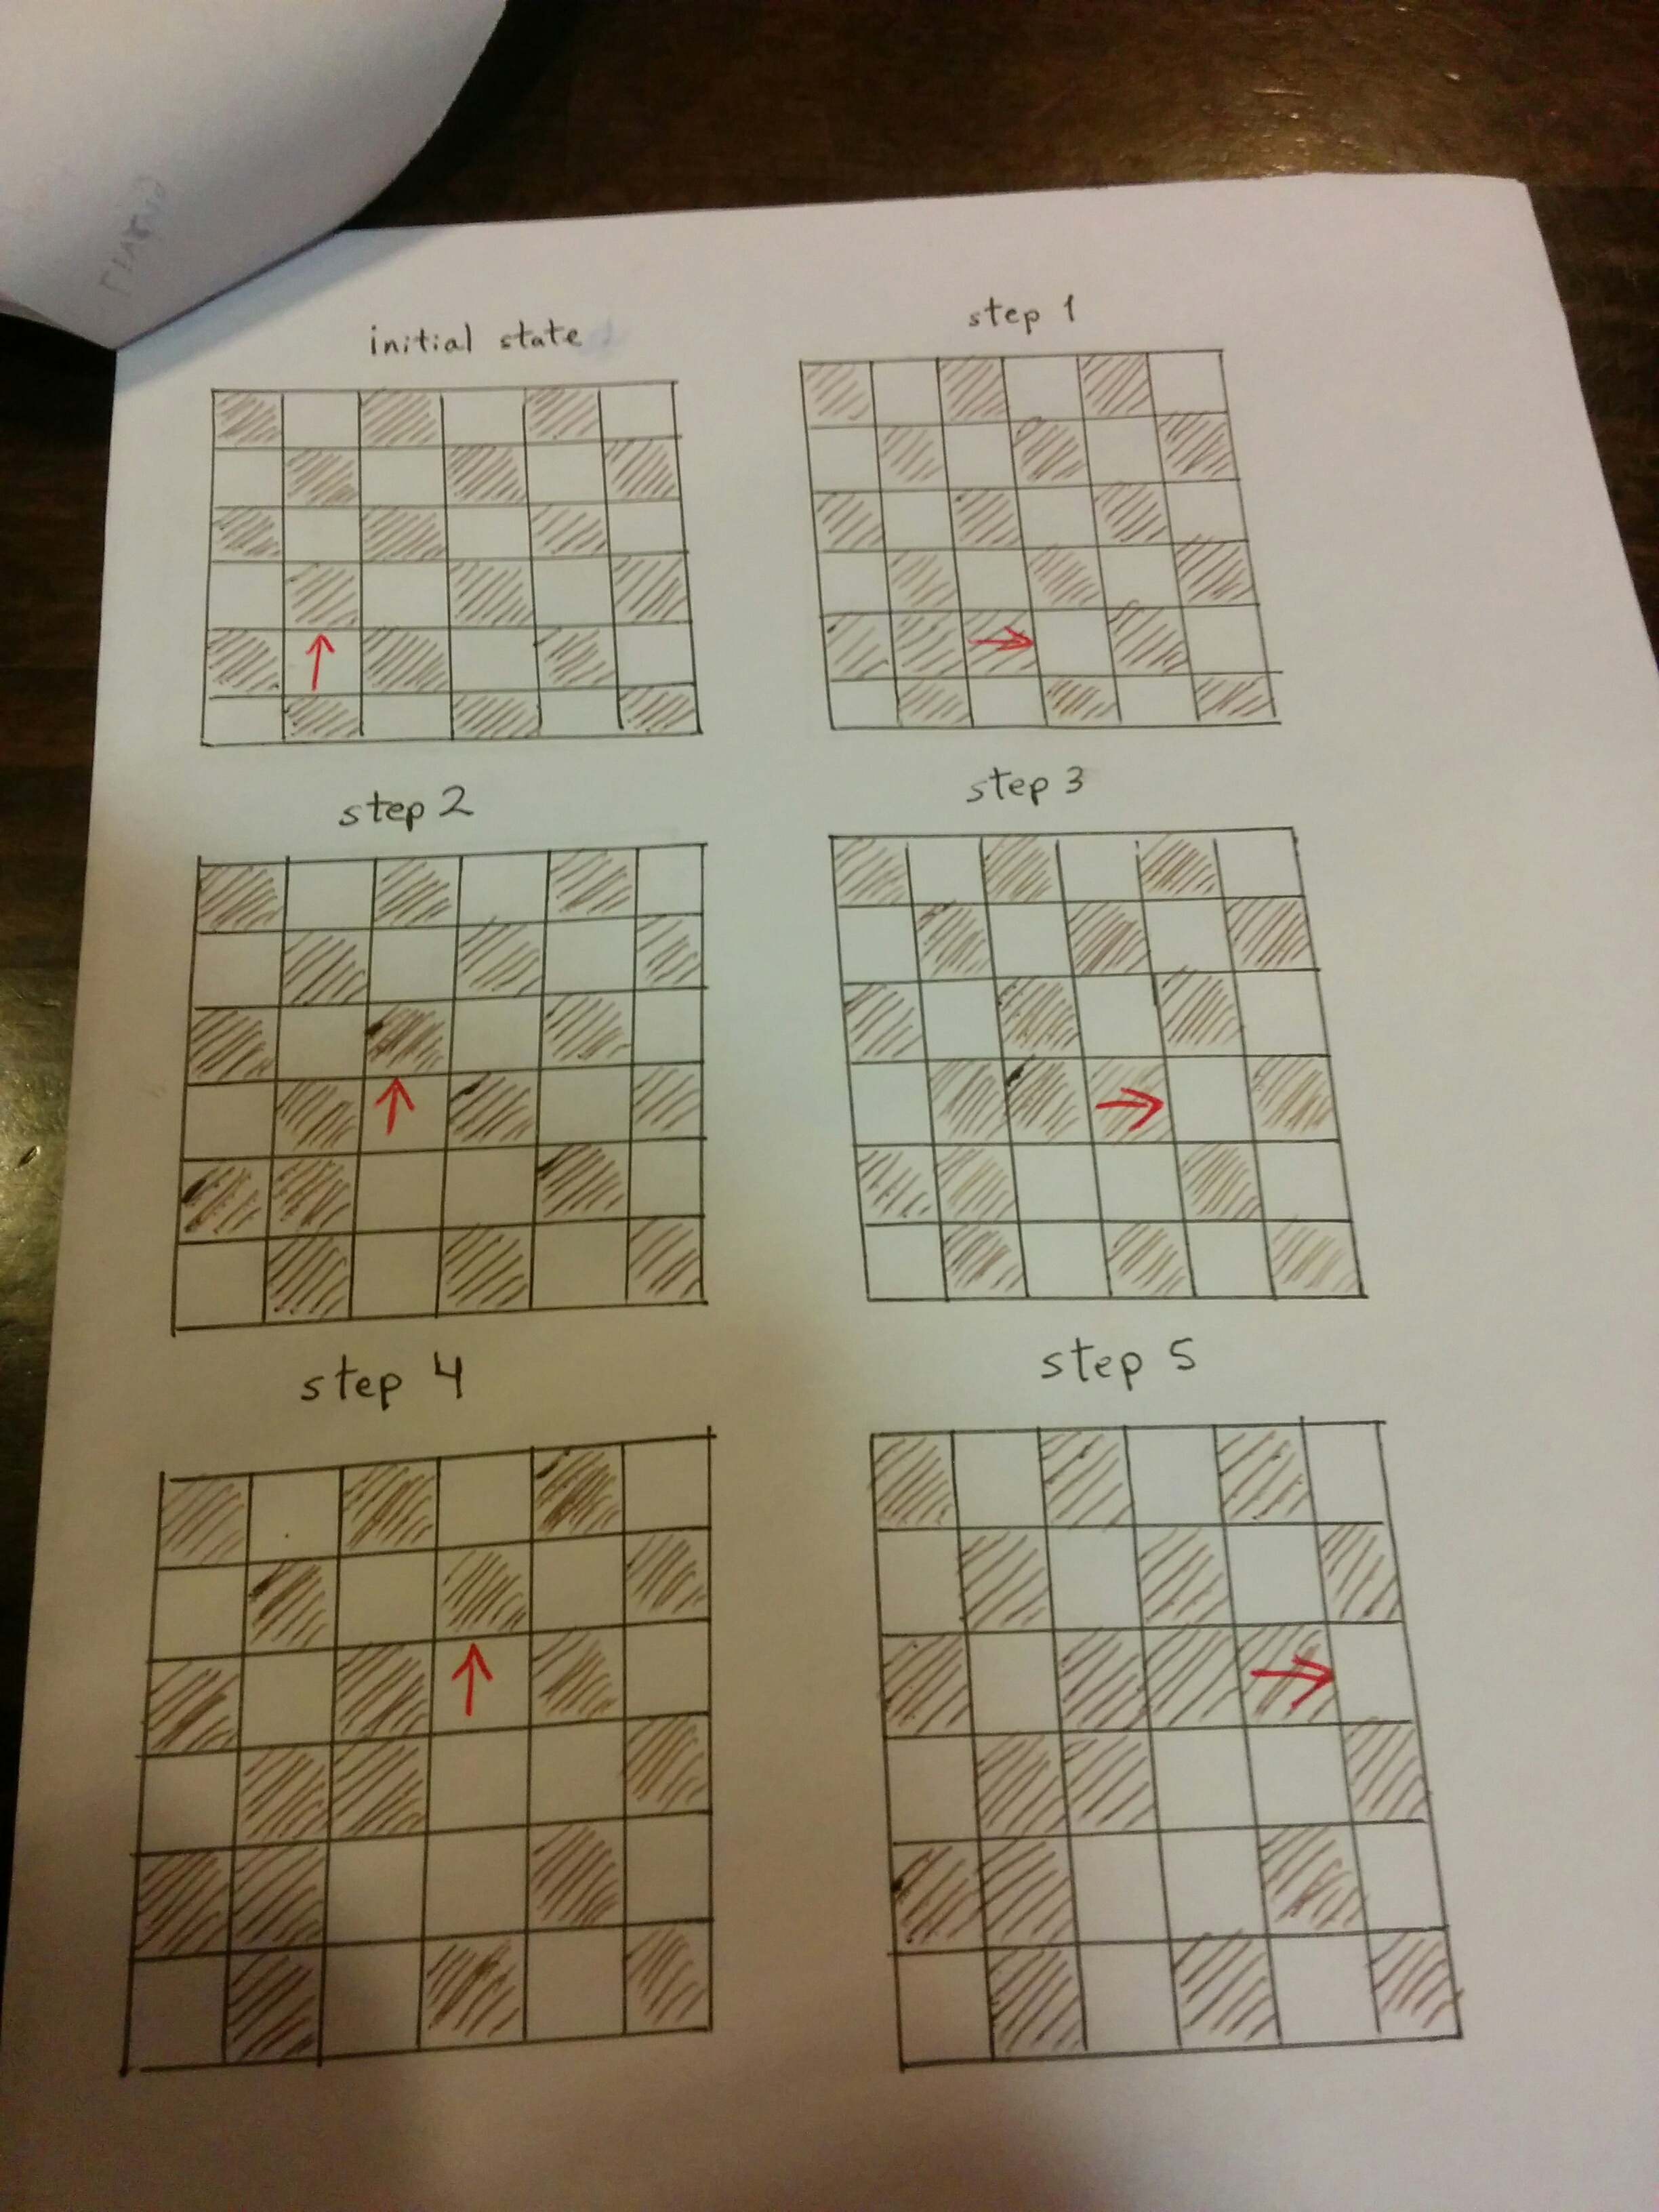 initial state
step 1
step 2
step 3
step 4
step 5